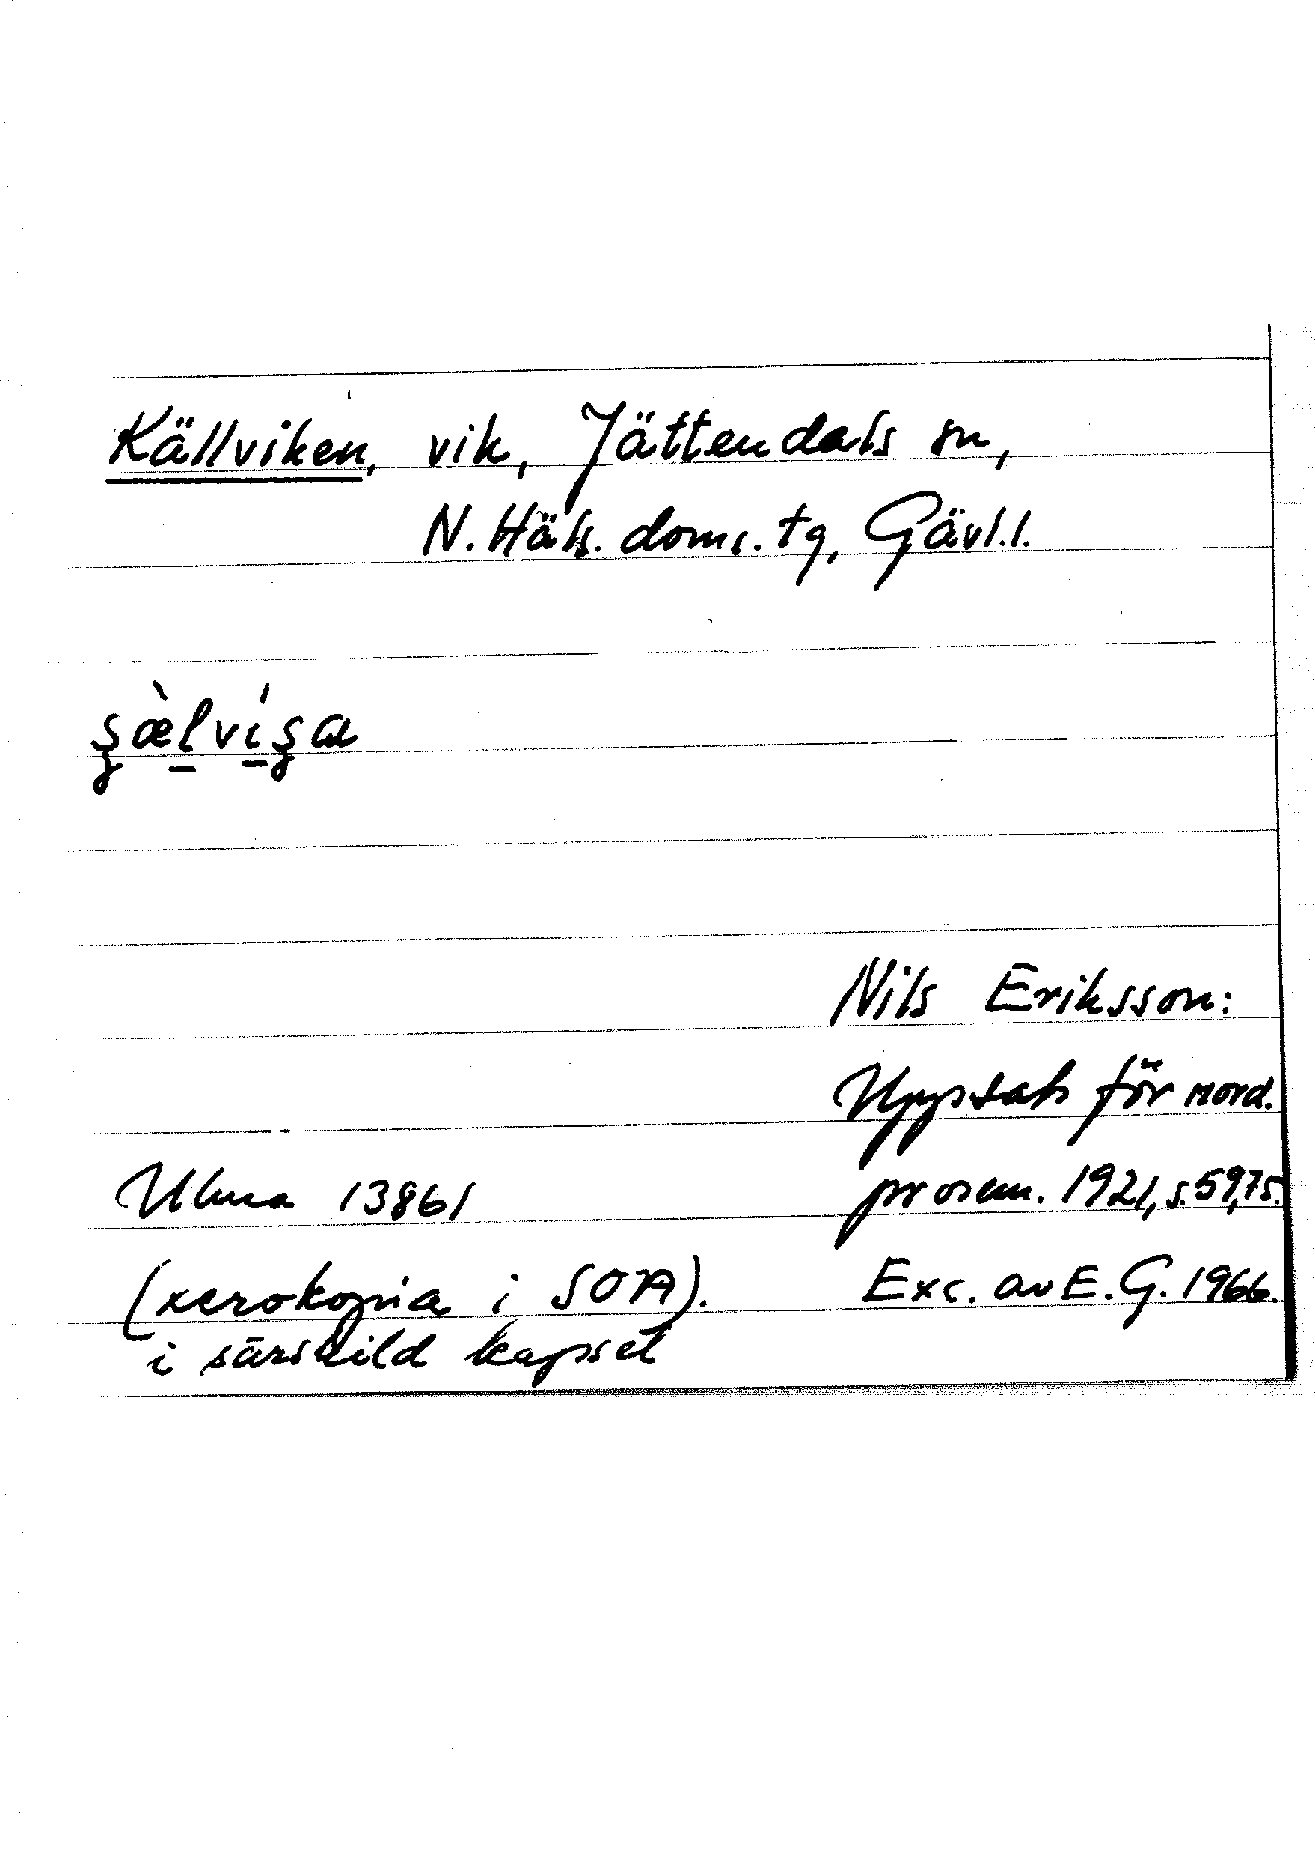 Källviken, vik, Jättendals sn,
N. Häls. doms. tg, Gävl. l.
ʂæ̀l̠ví̠ʂa
Nils Eriksson:
Uppsats för nord.
prosem. 1921, s. 59, 75.
Ulma 13861
(xerokopia i SOA).
i särskild kapsel
Exc. av E. G. 1966.